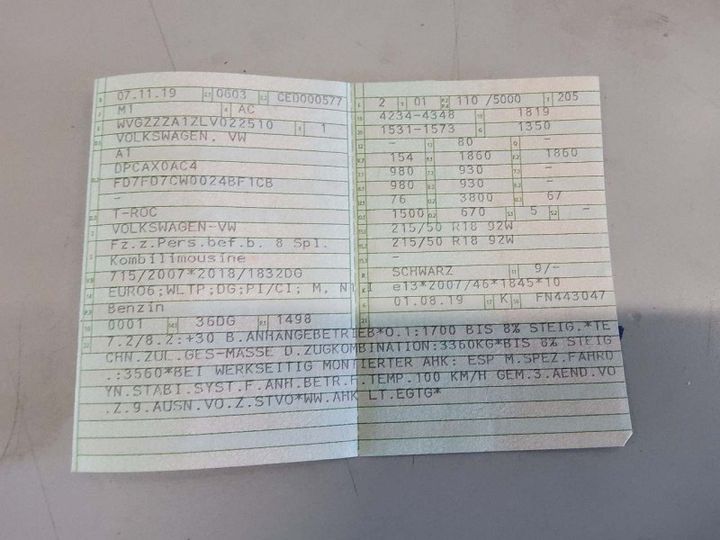 07.11.19 0603 CED000577
M1 AC
WVGZZZA1ZLV022510 1
VOLKSWAGEN, VW
A1
DPCAX0AC4
FD7FD7CW0024BF1CB
-
T-ROC
VOLKSWAGEN-VW
Fz.z.Pers.bef.b. 8 Spl.
Kombilimousine
715/2007*2018/1832DG
EURO6;WLTP;DG;PI/CI; M, N1 I
Benzin
0001 36DG 1498
2 01 110 /5000 205
4234-4348 1819
1531-1573 1350
- 80 -
154 1860 1860
980 930 -
980 930 -
76 3800 67
1500 670 5 -
215/50 R18 92W
215/50 R18 92W
-
SCHWARZ 9/-
e13*2007/46*1845*10
01.08.19 K FN443047
7.2/8.2:+30 B.ANHÄNGEBETRIEB*O.1:1700 BIS 8% STEIG.*TE
CHN.ZUL.GES-MASSE D.ZUGKOMBINATION:3360KG*BIS 8% STEIG
.:3560*BEI WERKSEITIG MONTIERTER AHK: ESP M.SPEZ.FAHRD
YN.STABI.SYST.F.ANH.BETR.F.TEMP.100 KM/H GEM.3.AEND.VO
.Z.9.AUSN.VO.Z.STVO*WW.AHK LT.EGTG*